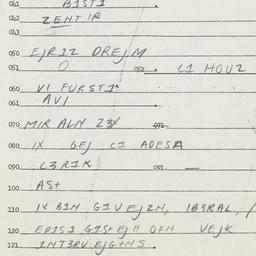 041 B1STI
042 ZENTIR
043
050 EJRIZ DREJM
051 O 052 . C1 HOUZ
060 VI FURSTI
061 AVI
070 MIR ALN 23X 071
080 IX GEJ C1 ADESA
090 C3R1K 091 —
100 AS+
110 IV BIN G1VEJZN, IB3RAL, /
120 EPIS1 G1S+EJN OFN VEJK
121 INT3RV.EJG+NS.